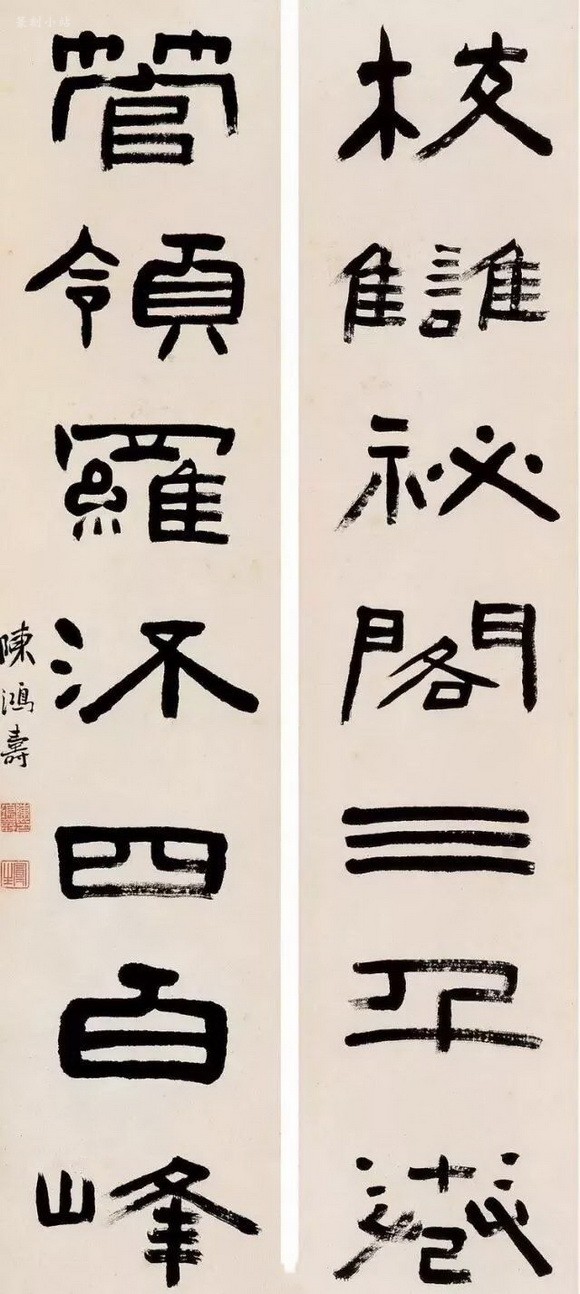 校讎祕閣三
管領羅四百峰
陳鴻壽
篆刻小站